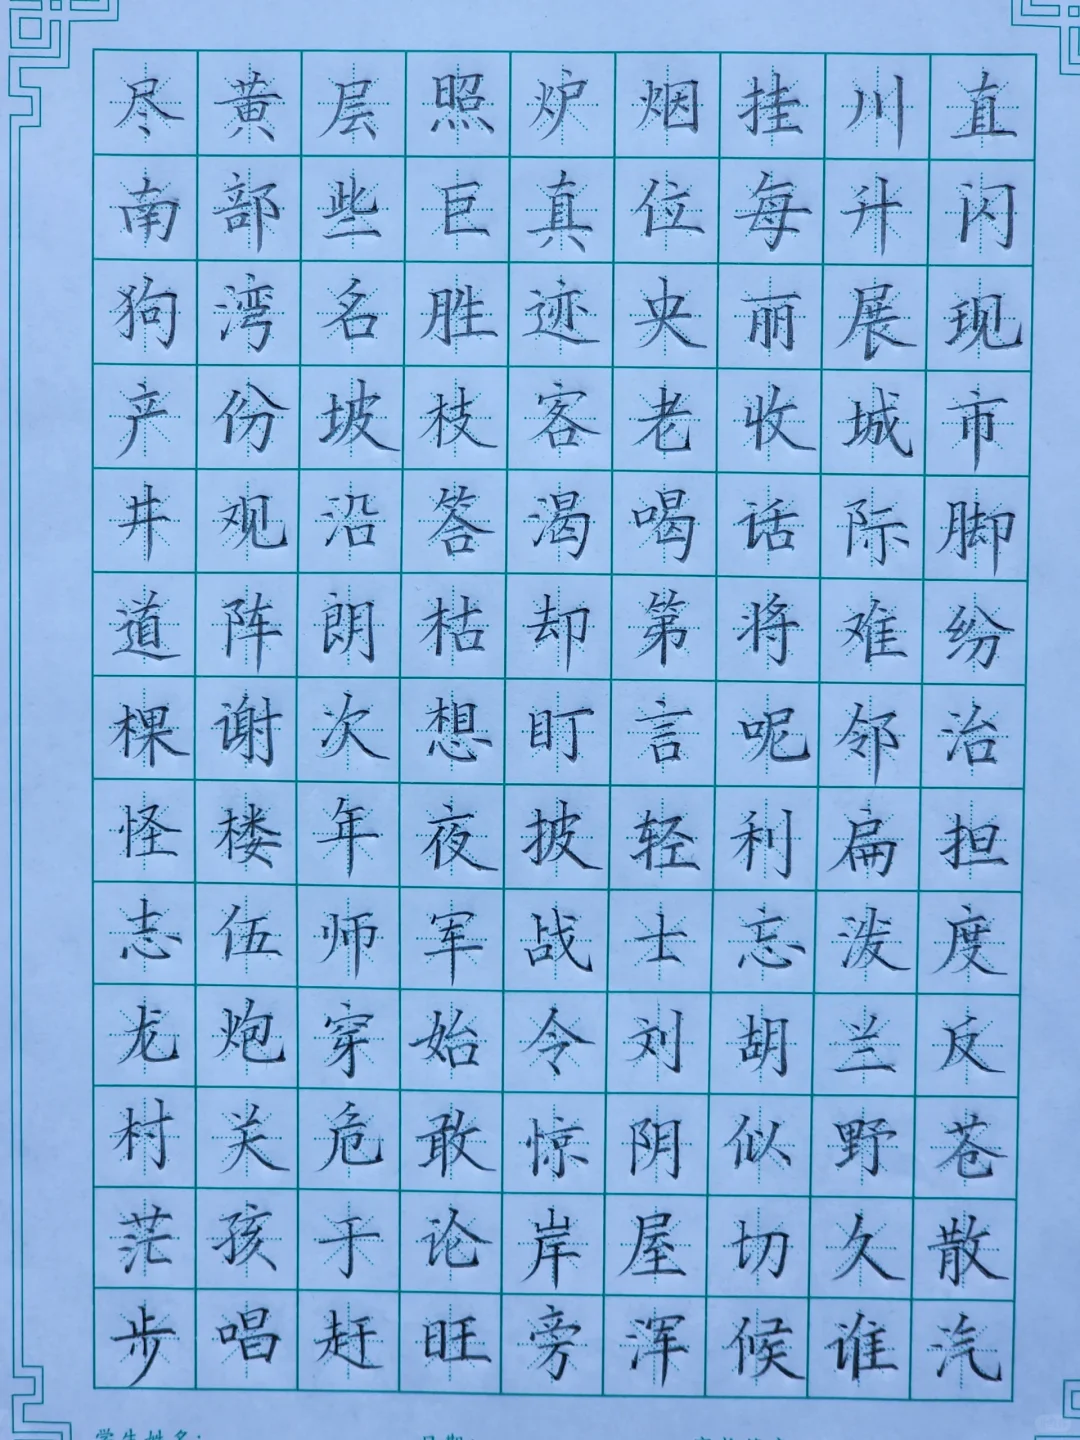 尽黄层照炉烟挂川直
南部些巨真位每升闪
狗湾名胜迹央丽展现
产份坡枝客老收城市
井观沿答渴喝话际脚
道阵朗枯却第将难纷
棵谢次想盯言呢邻治
怪楼年夜披轻利扁担
志伍师军战士忘泼度
龙炮穿始令刘胡兰反
村关危敢惊阴似野苍
茫孩于论岸屋切久散
步唱赶旺旁浑候谁汽
学生姓名: